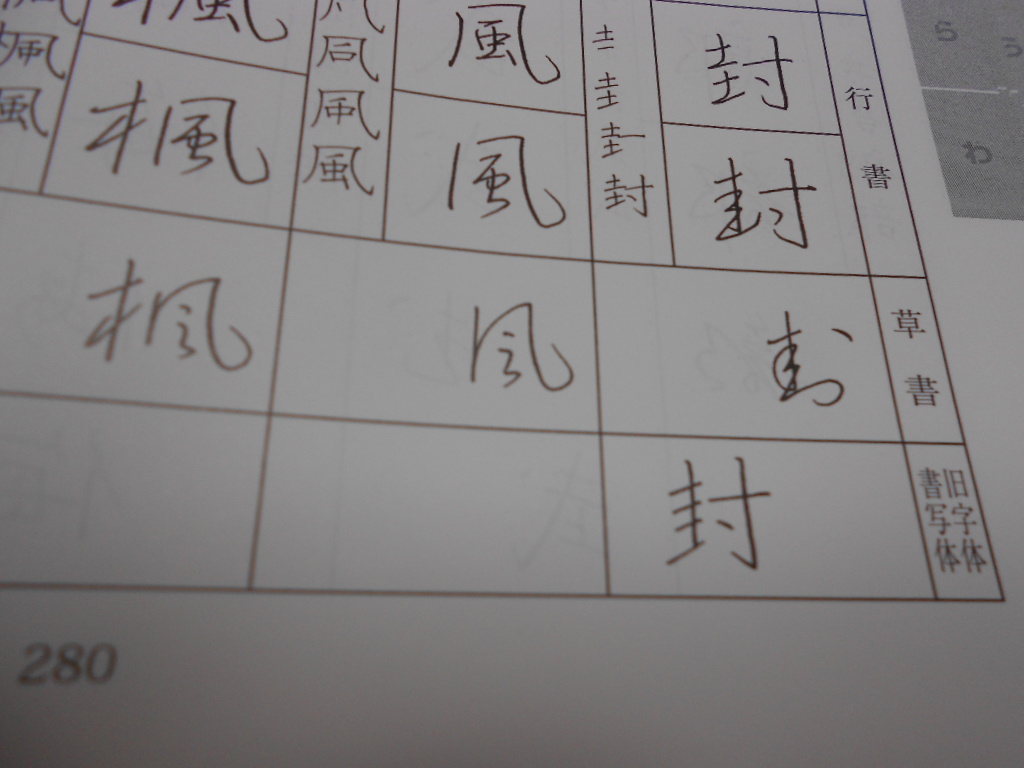 行書
封
封
士
圭
封
風
風
同
凨
風
楓
楓
風
草書
封
風
楓
旧字体
書写体
封
ら
う
わ
280